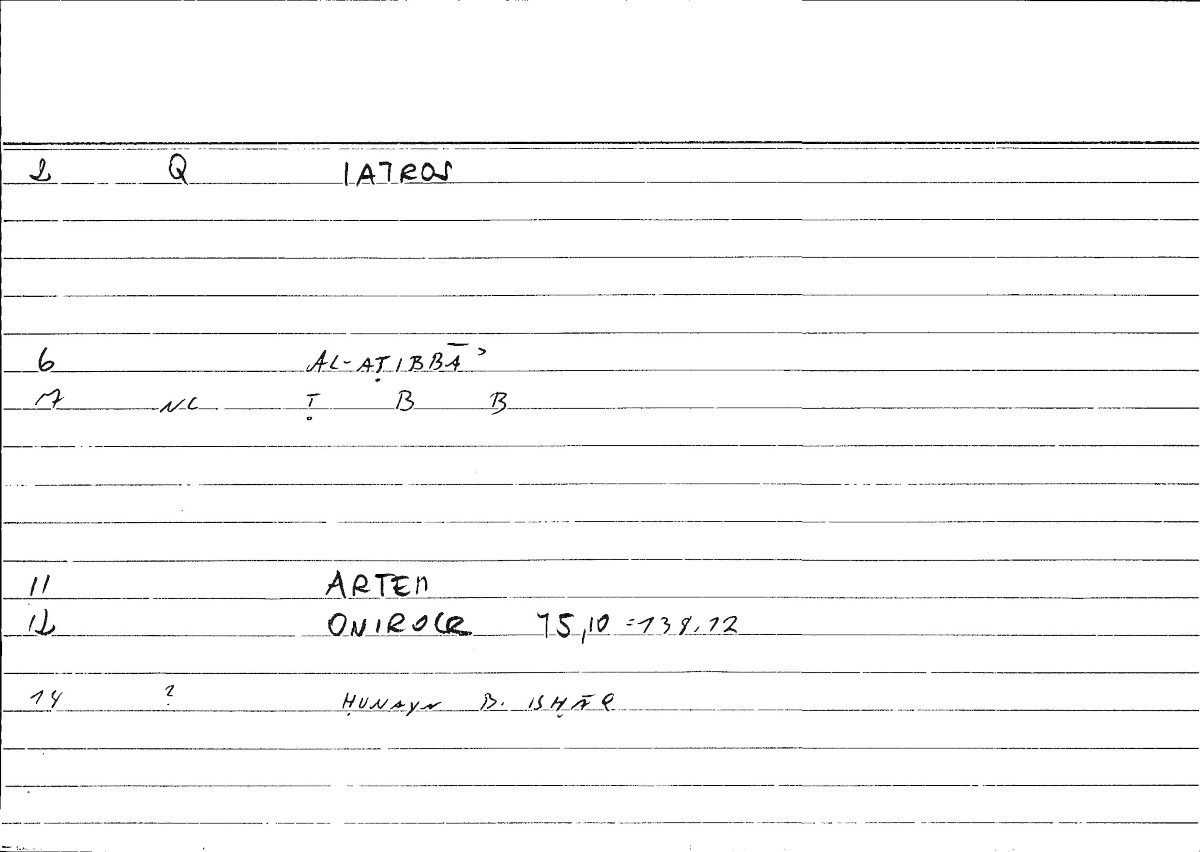 2 Q IATROS
6 AL-AṬIBBĀʾ
7 NC Ṭ B B
11 ARTEM
12 ONIROCR 75,10 =139,12
14 ? ḤUNAYN B. ISḤĀQ